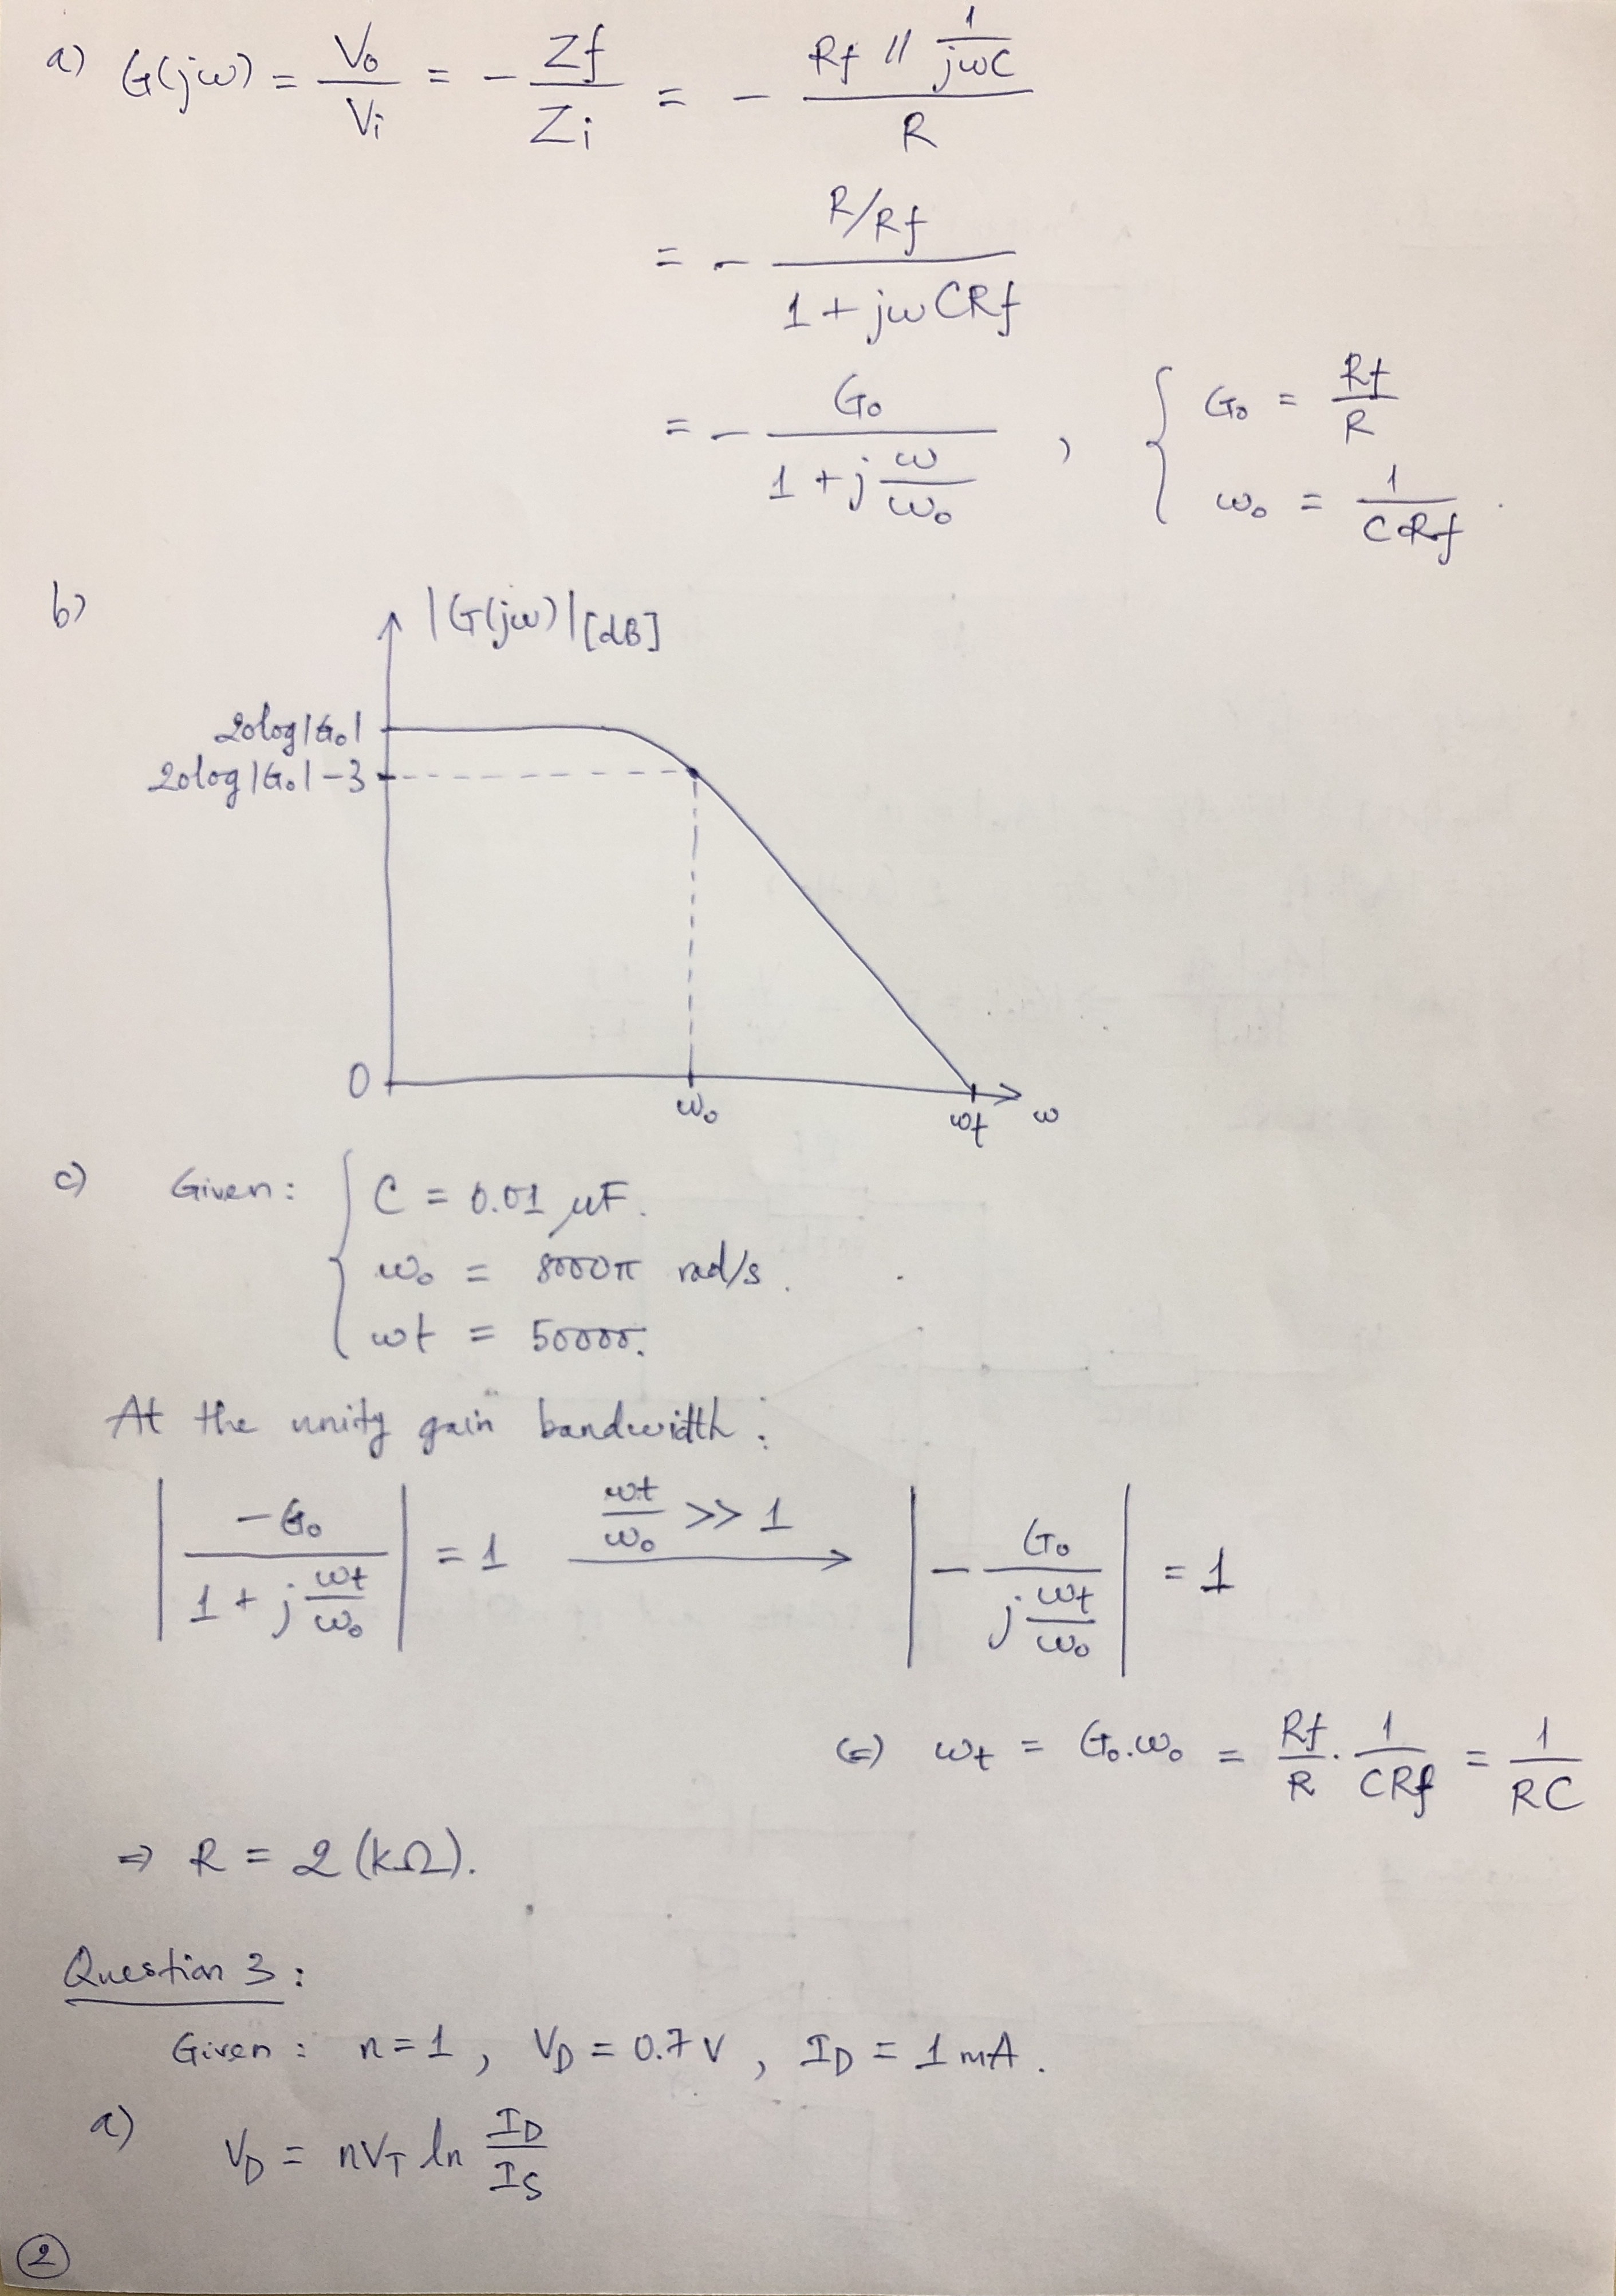 a) G(jω) = Vo/Vi = - Zf/Zi = - (Rf // 1/jωC)/R
= - (R/Rf)/(1 + jωCRf)
= - Go/(1 + j ω/ωo) , { Go = Rf/R
ωo = 1/CRf .
b)
|G(jω)| [dB]
20log|Go|
20log|Go| - 3
0
ωo
ωt
ω
c) Given: { C = 0.01 µF.
ωo = 8000π rad/s.
ωt = 50000.
At the unity gain bandwidth:
| -Go/(1 + j ωt/ωo) | = 1 ωt/ωo >> 1 → | - Go/(j ωt/ωo) | = 1
(=) ωt = Go.ωo = Rf/R . 1/CRf = 1/RC
⇒ R = 2 (kΩ).
Question 3:
Given: n=1, VD = 0.7 V, ID = 1 mA.
a) VD = nVT ln ID/IS
2